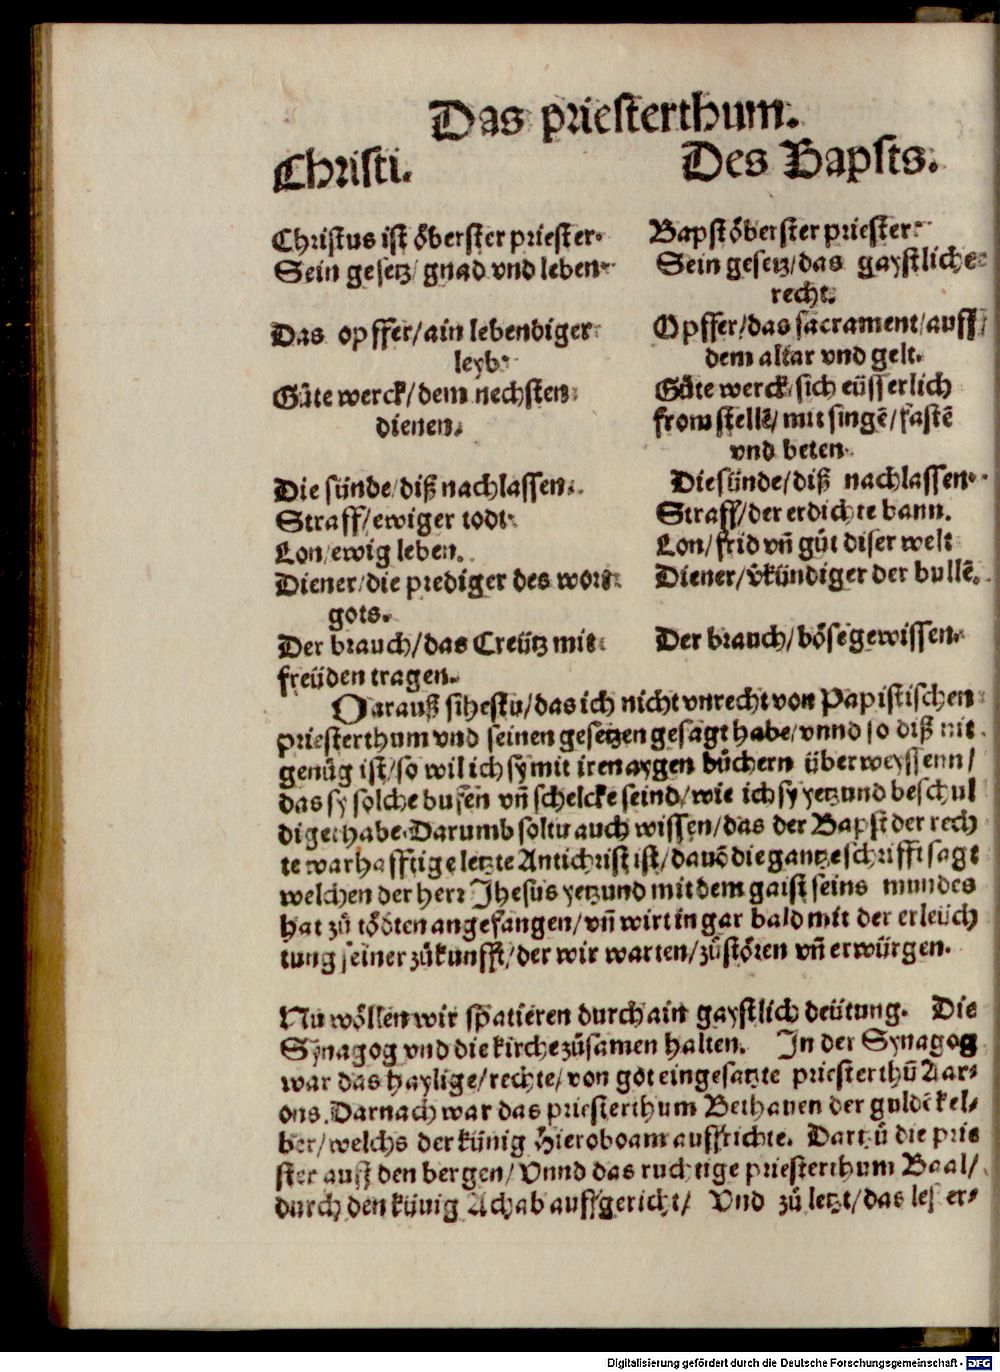 Das priesterthum.
Christi.
Christus ist öberster priester.
Sein gesetz/ gnad vnd leben.
Das opffer/ain lebendiger
leyb.
Gůte werck/dem nechsten
dienen.
Die sünde/diß nachlassen.
Straff/ewiger todt.
Lon/ewig leben.
Diener/die prediger des worts
gots.
Der brauch/das Creütz mit
freüden tragen.
Des Bapsts.
Bapst öberster priester.
Sein gesetz/das gaystliche
recht.
Opffer/das sacrament/auff
dem altar vnd gelt.
Gůte werck/sich eüsserlich
from stellē/mit singē/fastē
vnd beten.
Die sünde/diß nachlassen.
Straff/der erdichte bann.
Lon/frid vn̄ gůt diser welt
Diener/v̓kündiger der bullē.
Der brauch/böse gewissen.
Darauß sihestu/das ich nicht vnrecht von Papistischen
priesterthum vnd seinen gesetzen gesagt habe/vnnd so diß nit
genůg ist/so wil ich sy mit iren aygen bůchern überweyssenn/
das sy solche bufen vn̄ schelcke seind/wie ich sy yetzund beschul
diget habe. Darumb soltu auch wissen/das der Bapst der rech
te warhafftige letzte Antichrist ist/dauō die gantze schrifft sagt
welchen der herr Jhesus yetzund mit dem gaist seins mundes
hat zů tödten angefangen/vn̄ wirt in gar bald mit der erleüch
tung seiner zůkunfft/der wir warten/zůstören vn̄ erwürgen.
Nu wöllen wir spatieren durch ain gaystlich deütung. Die
Synagog vnd die kirche zůsamen halten. In der Synagog
war das haylige/rechte/von got eingesatzte priesterthū Aar⸗
ons. Darnach war das priesterthum Bethauen der guldē kel⸗
ber/welchs der künig Hieroboam auffrichte. Dartzů die prie
ster auff den bergen/ Vnnd das ruchtige priesterthum Baal/
durch den künig Achab auffgericht/ Vnd zů letzt/das les er⸗
Digitalisierung gefördert durch die Deutsche Forschungsgemeinschaft - DFG